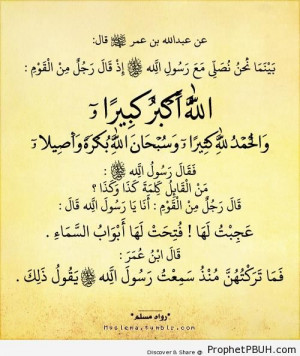 عن عبدالله بن عمر ﷺ قال:
بَيْنَمَا نَحْنُ نُصَلِّي مَعَ رَسُولِ اللهِ ﷺ إِذْ قَالَ رَجُلٌ مِنْ الْقَوْمِ :
اللهُ أَكْبَرُ كَبِيرًا وَ
وَالْحَمْدُ لِلَّهِ كَثِيرًا وَ وَسُبْحَانَ اللهِ بُكْرَةً وَأَصِيلًا وَ
فَقَالَ رَسُولُ اللهِ ﷺ :
مَنْ الْقَائِلُ كَلِمَةَ كَذَا وَكَذَا ؟
قَالَ رَجُلٌ مِنْ الْقَوْمِ : أَنَا يَا رَسُولَ اللهِ قَالَ :
عَجِبْتُ لَهَا ! فُتِحَتْ لَهَا أَبْوَابُ السَّمَاءِ .
قَالَ ابْنُ عُمَرَ :
فَمَا تَرَكْتُهُنَّ مُنْذُ سَمِعْتُ رَسُولَ اللهِ ﷺ يَقُولُ ذَلِكَ .
*رواه مسلم*
Muslema.tumblr.com
Discover & Share @ ProphetPBUH.com